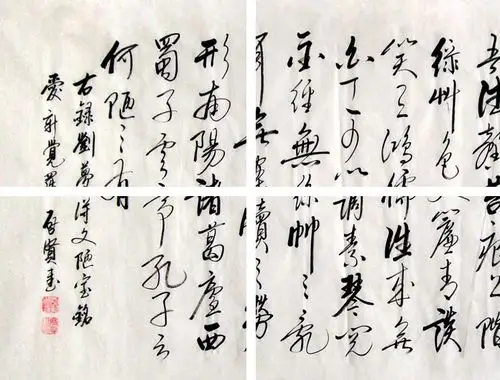 吾德馨苔痕上階
綠艸色入簾青談
笑有鴻儒往來無
白丁可以調素琴閱
金經無絲竹之亂
耳無案牘之勞
形南陽諸葛廬西
蜀子雲亭孔子云
何陋之有
右錄劉夢得文陋室銘
愛新覺羅啓賢書